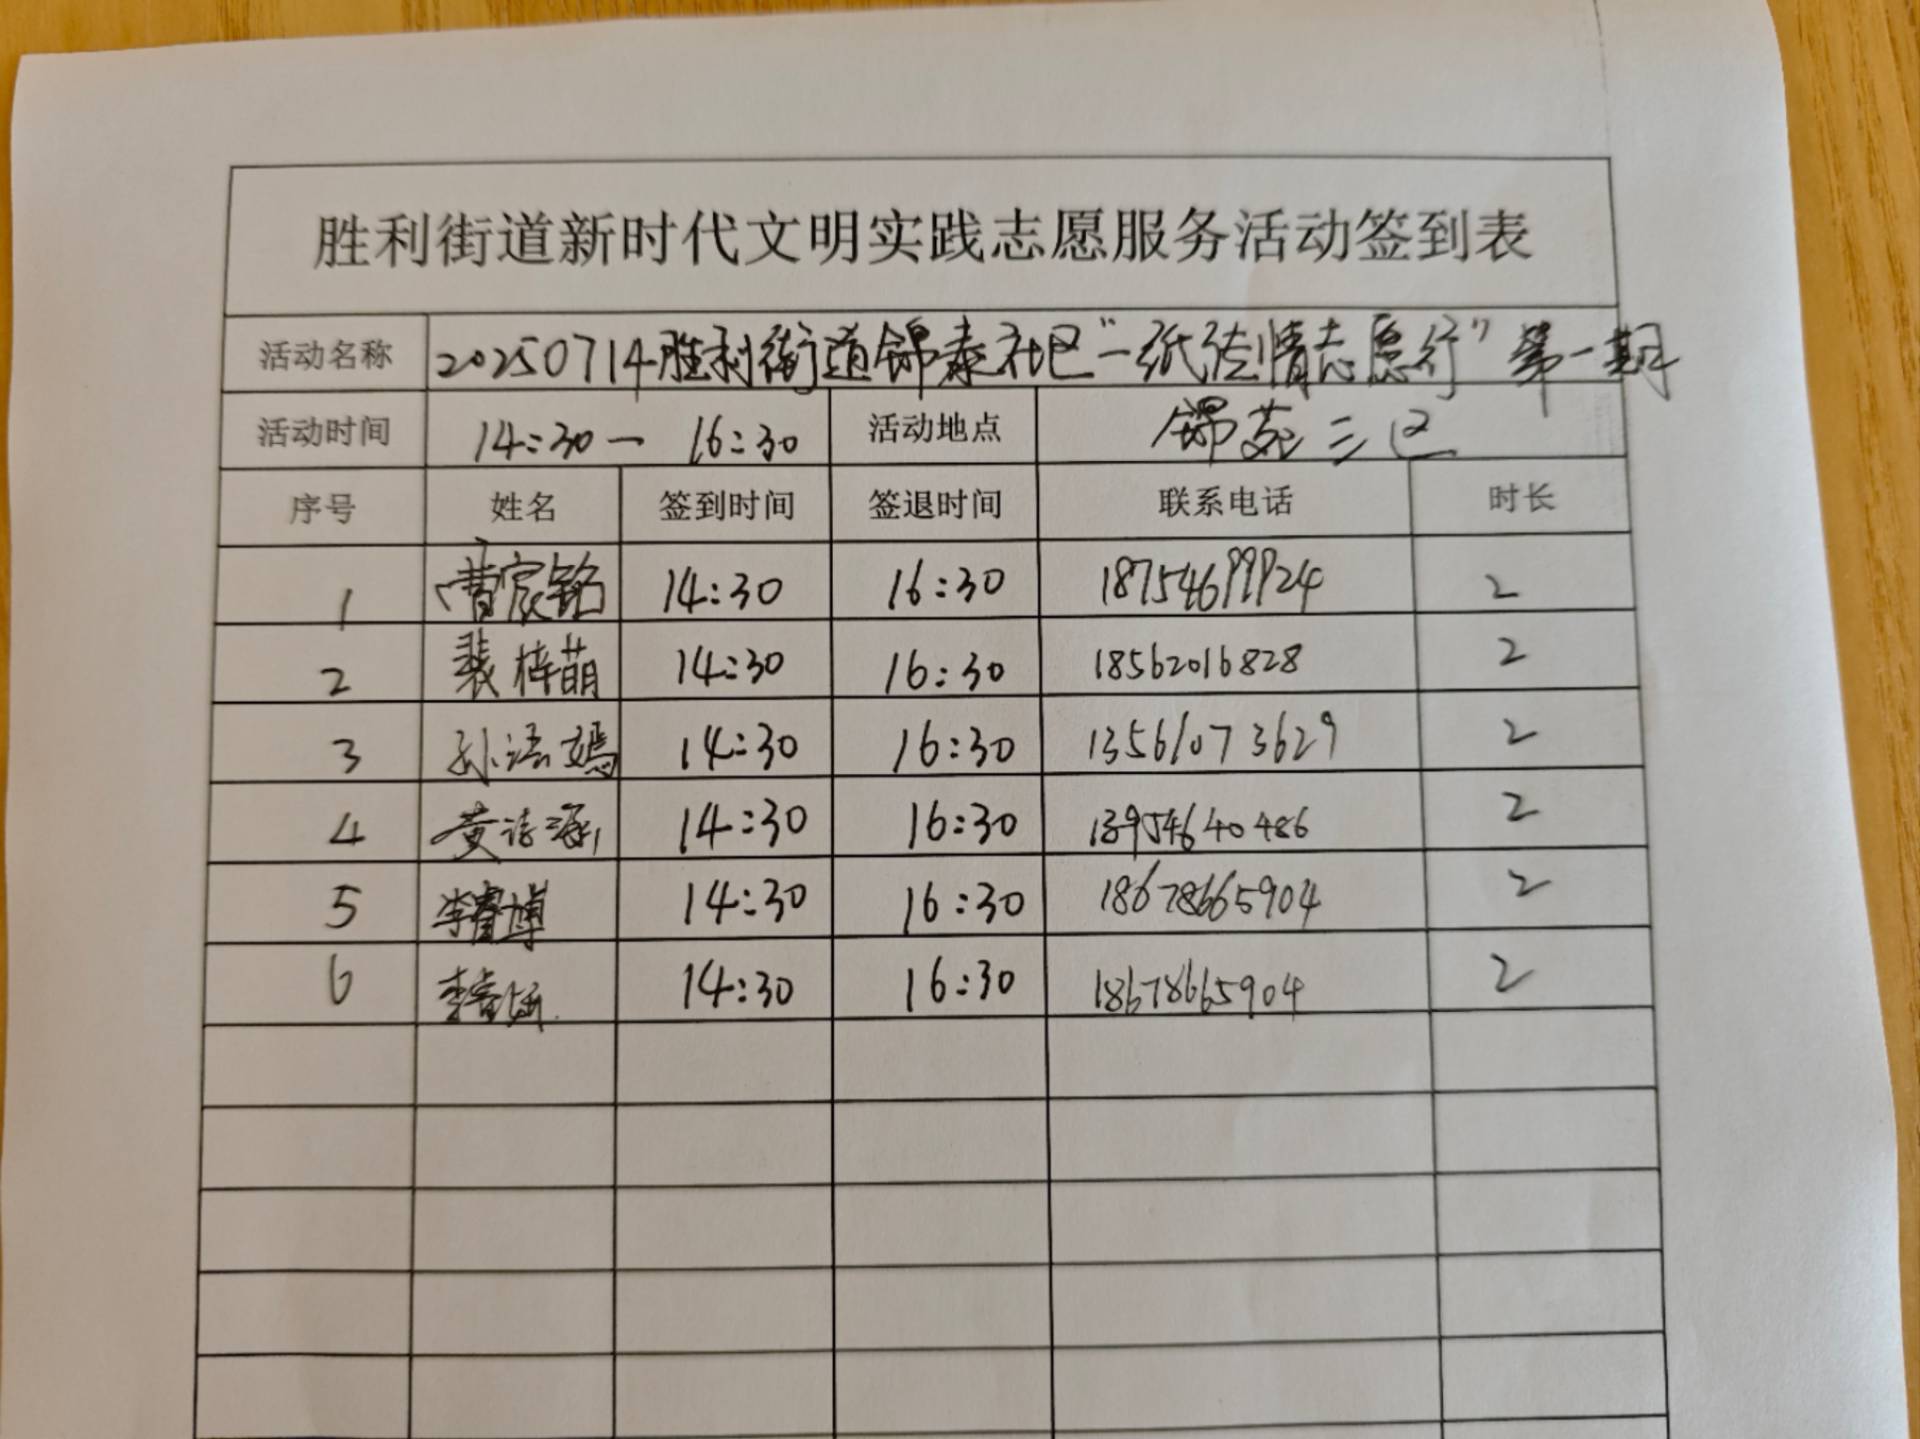 胜利街道新时代文明实践志愿服务活动签到表
活动名称 20250714胜利街道锦泰社区“一纸传情志愿行”第一期
活动时间 14:30一 16:30 活动地点 锦苑三区
序号 姓名 签到时间 签退时间 联系电话 时长
1 曹宸铭 14:30 16:30 18754699924 2
2 裴梓萌 14:30 16:30 18562016828 2
3 孙语嫣 14:30 16:30 13561073629 2
4 黄诗涵 14:30 16:30 13954640486 2
5 李睿博 14:30 16:30 18678665904 2
6 李睿涵 14:30 16:30 18678665904 2